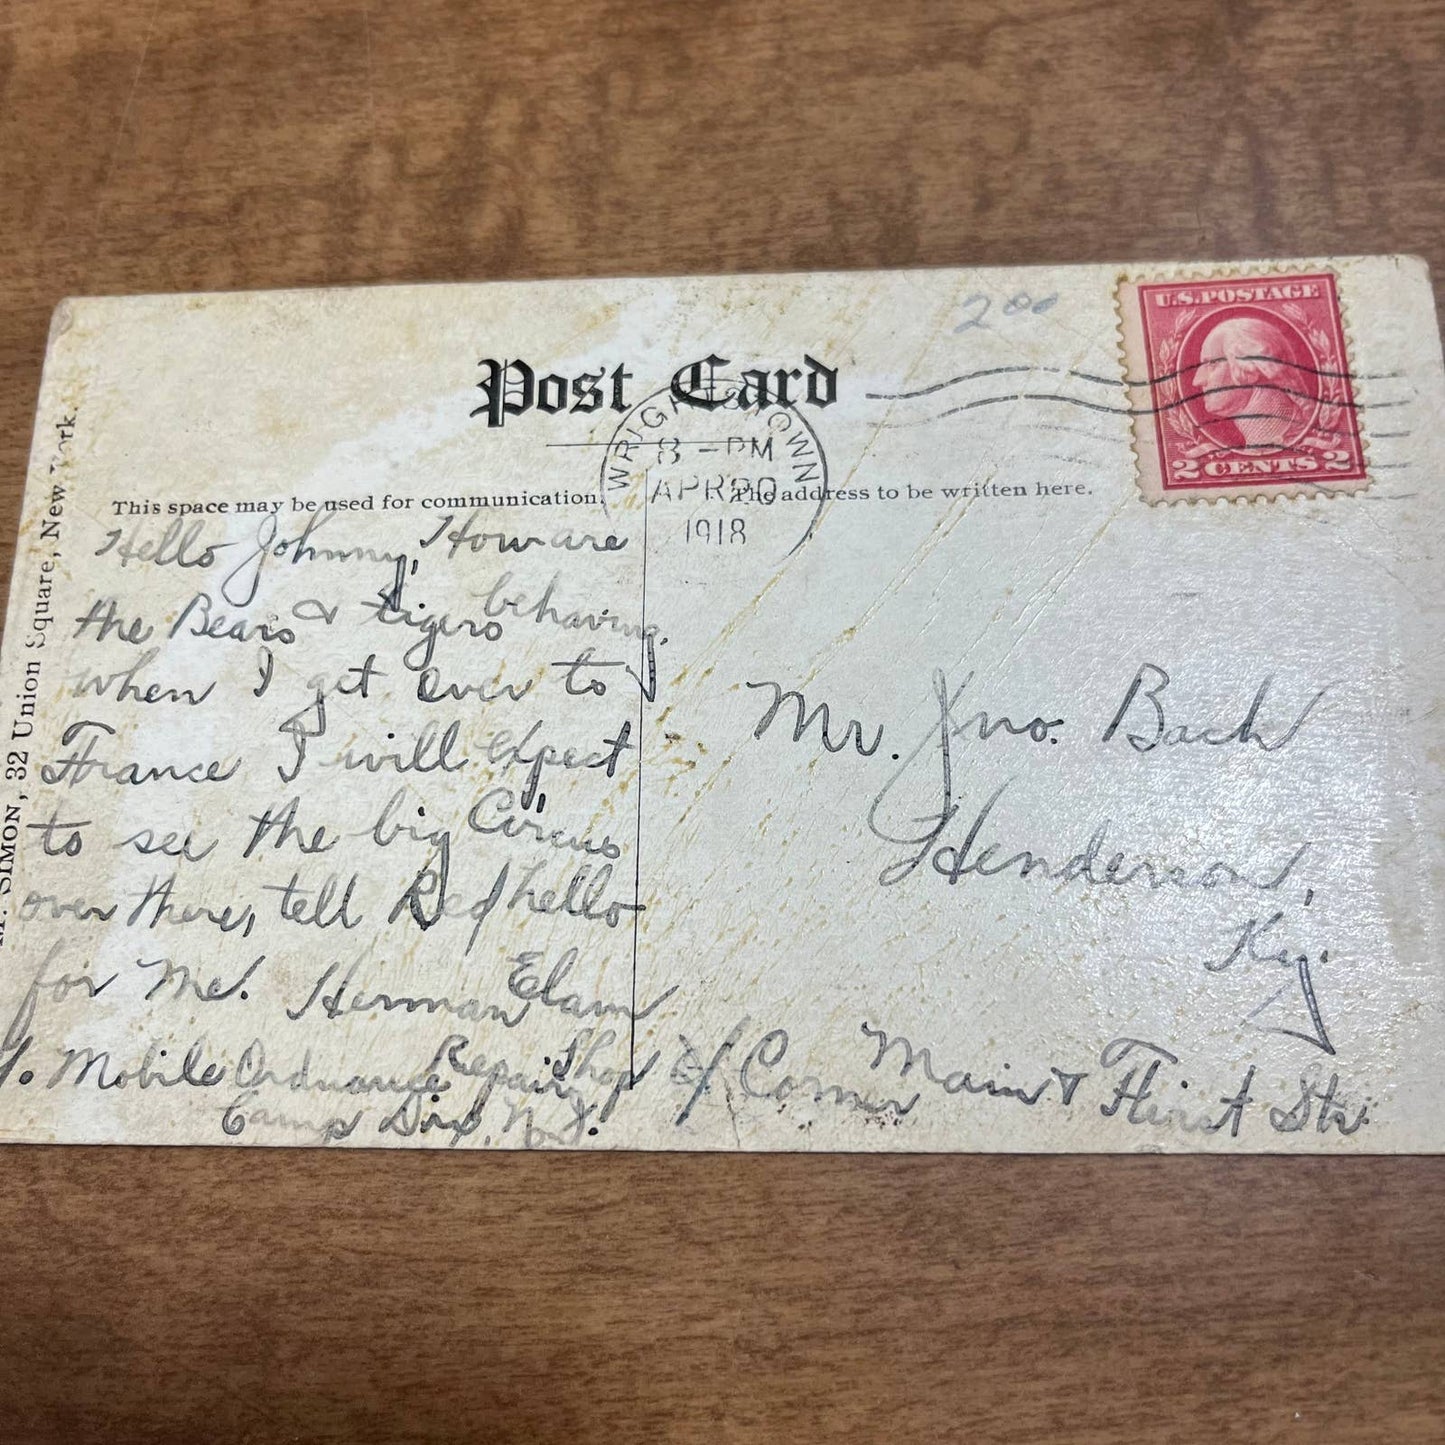 2 00
U.S. POSTAGE
2 CENTS 2
Post Card
WRIGHTSTOWN
8-PM
APR 20
1918
This space may be used for communication.
The address to be written here.
SIMON, 32 Union Square, New York.
Hello Johnny, How are
the Bears & tigers behaving.
when I get over to
France I will expect
to see the big Circus
over there, tell Red hello
for me. Herman Elam
Mobile Ordnance Repair Shop
Camp Dix, N.J.
Mr. Jno. Bach
Henderson,
Ky.
c/o Corner Main & First Str.